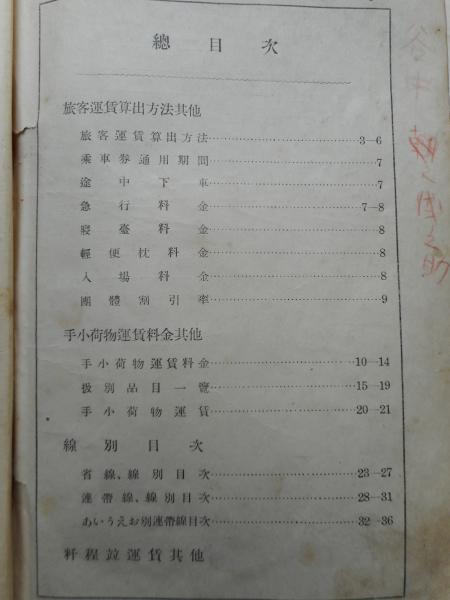 總目次
旅客運賃算出方法其他
旅客運賃算出方法 3—6
乘車券通用期間 7
途中下車 7
急行料金 7—8
寢臺料金 8
輕便枕料金 8
入場料金 8
團體割引率 9
手小荷物運賃料金其他
手小荷物運賃料金 10—14
扱別品目一覽 15—19
手小荷物運賃 20—21
線別目次
省線、線別目次 23—27
連帶線、線別目次 28—31
あいうえお別連帶線目次 32—36
粁程竝運賃其他